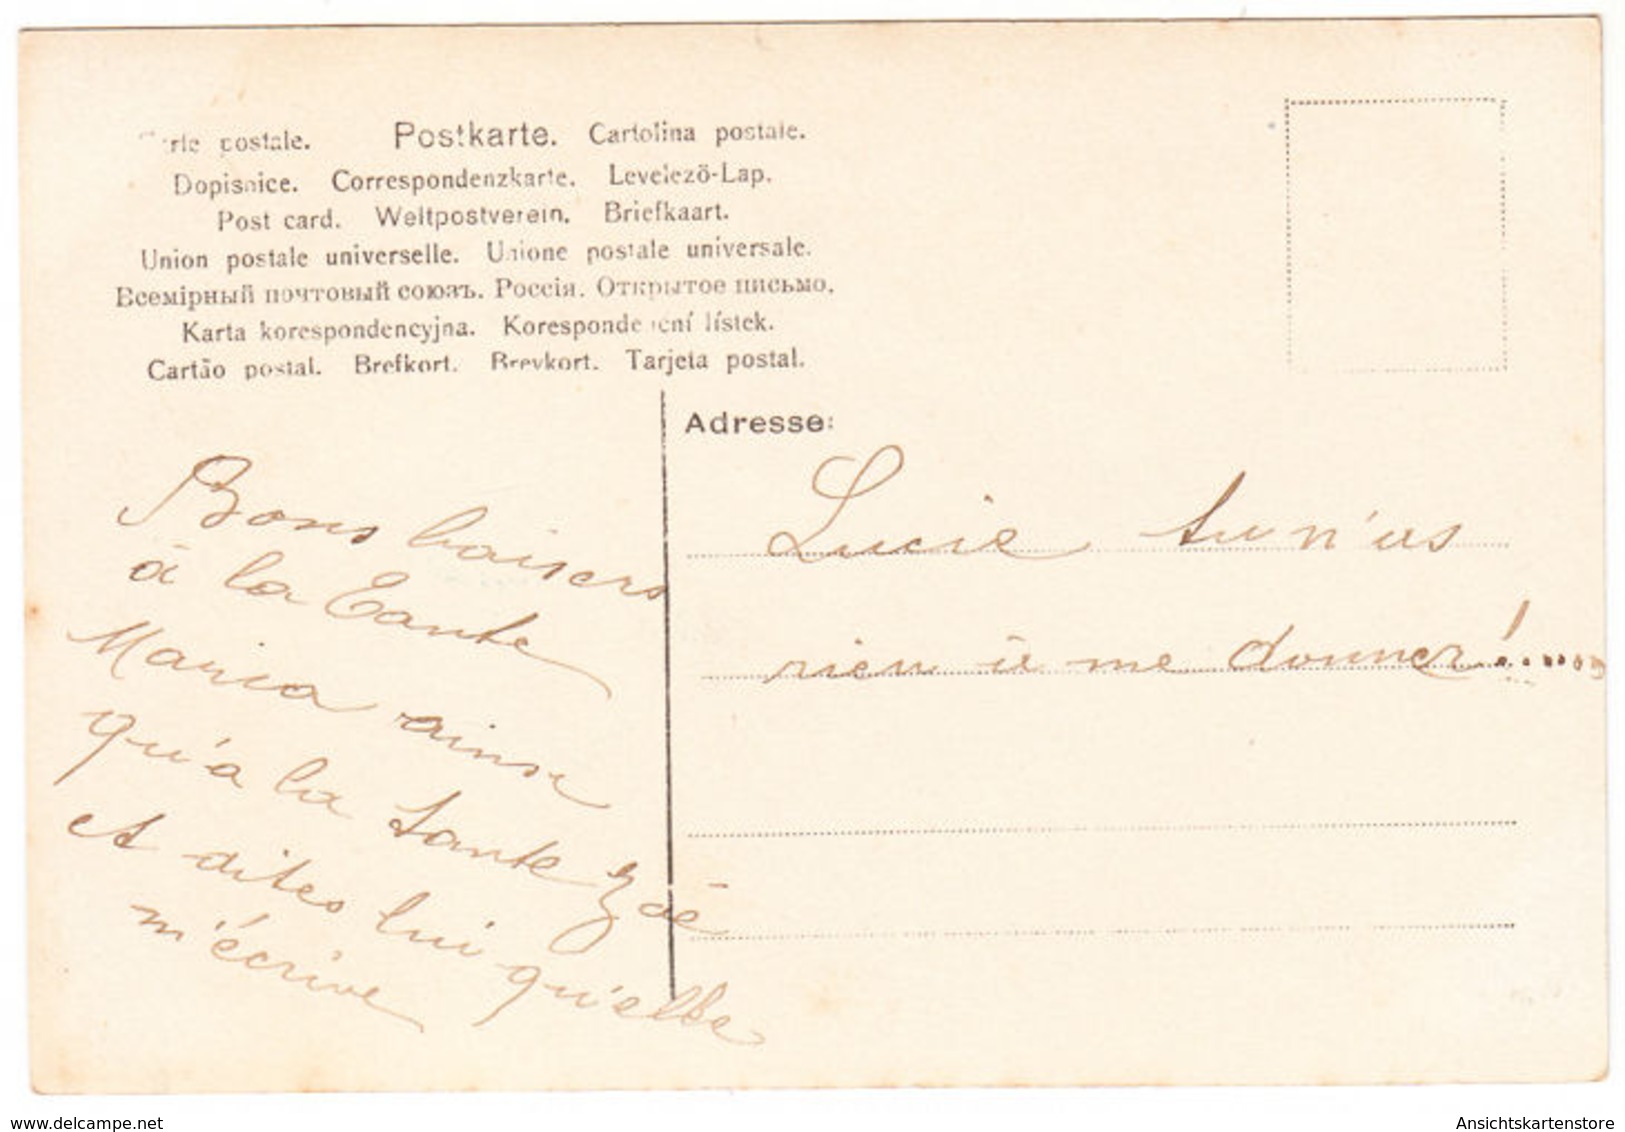 Carte postale. Postkarte. Cartolina postale.
Dopisnice. Correspondenzkarte. Levelező-Lap.
Post card. Weltpostverein. Briefkaart.
Union postale universelle. Unione postale universale.
Всемірный почтовый союзъ. Россія. Открытое письмо.
Karta korespondencyjna. Korespondenční lístek.
Cartão postal. Brefkort. Brevkort. Tarjeta postal.
Adresse:
Bons baisers
à la Tante
Maria ainsi
qu'a la tante Zoé
et dites lui qu'elle
m'écrive
Lucie tu n'as
rien à me donner!......
delcampe.net
Ansichtskartenstore